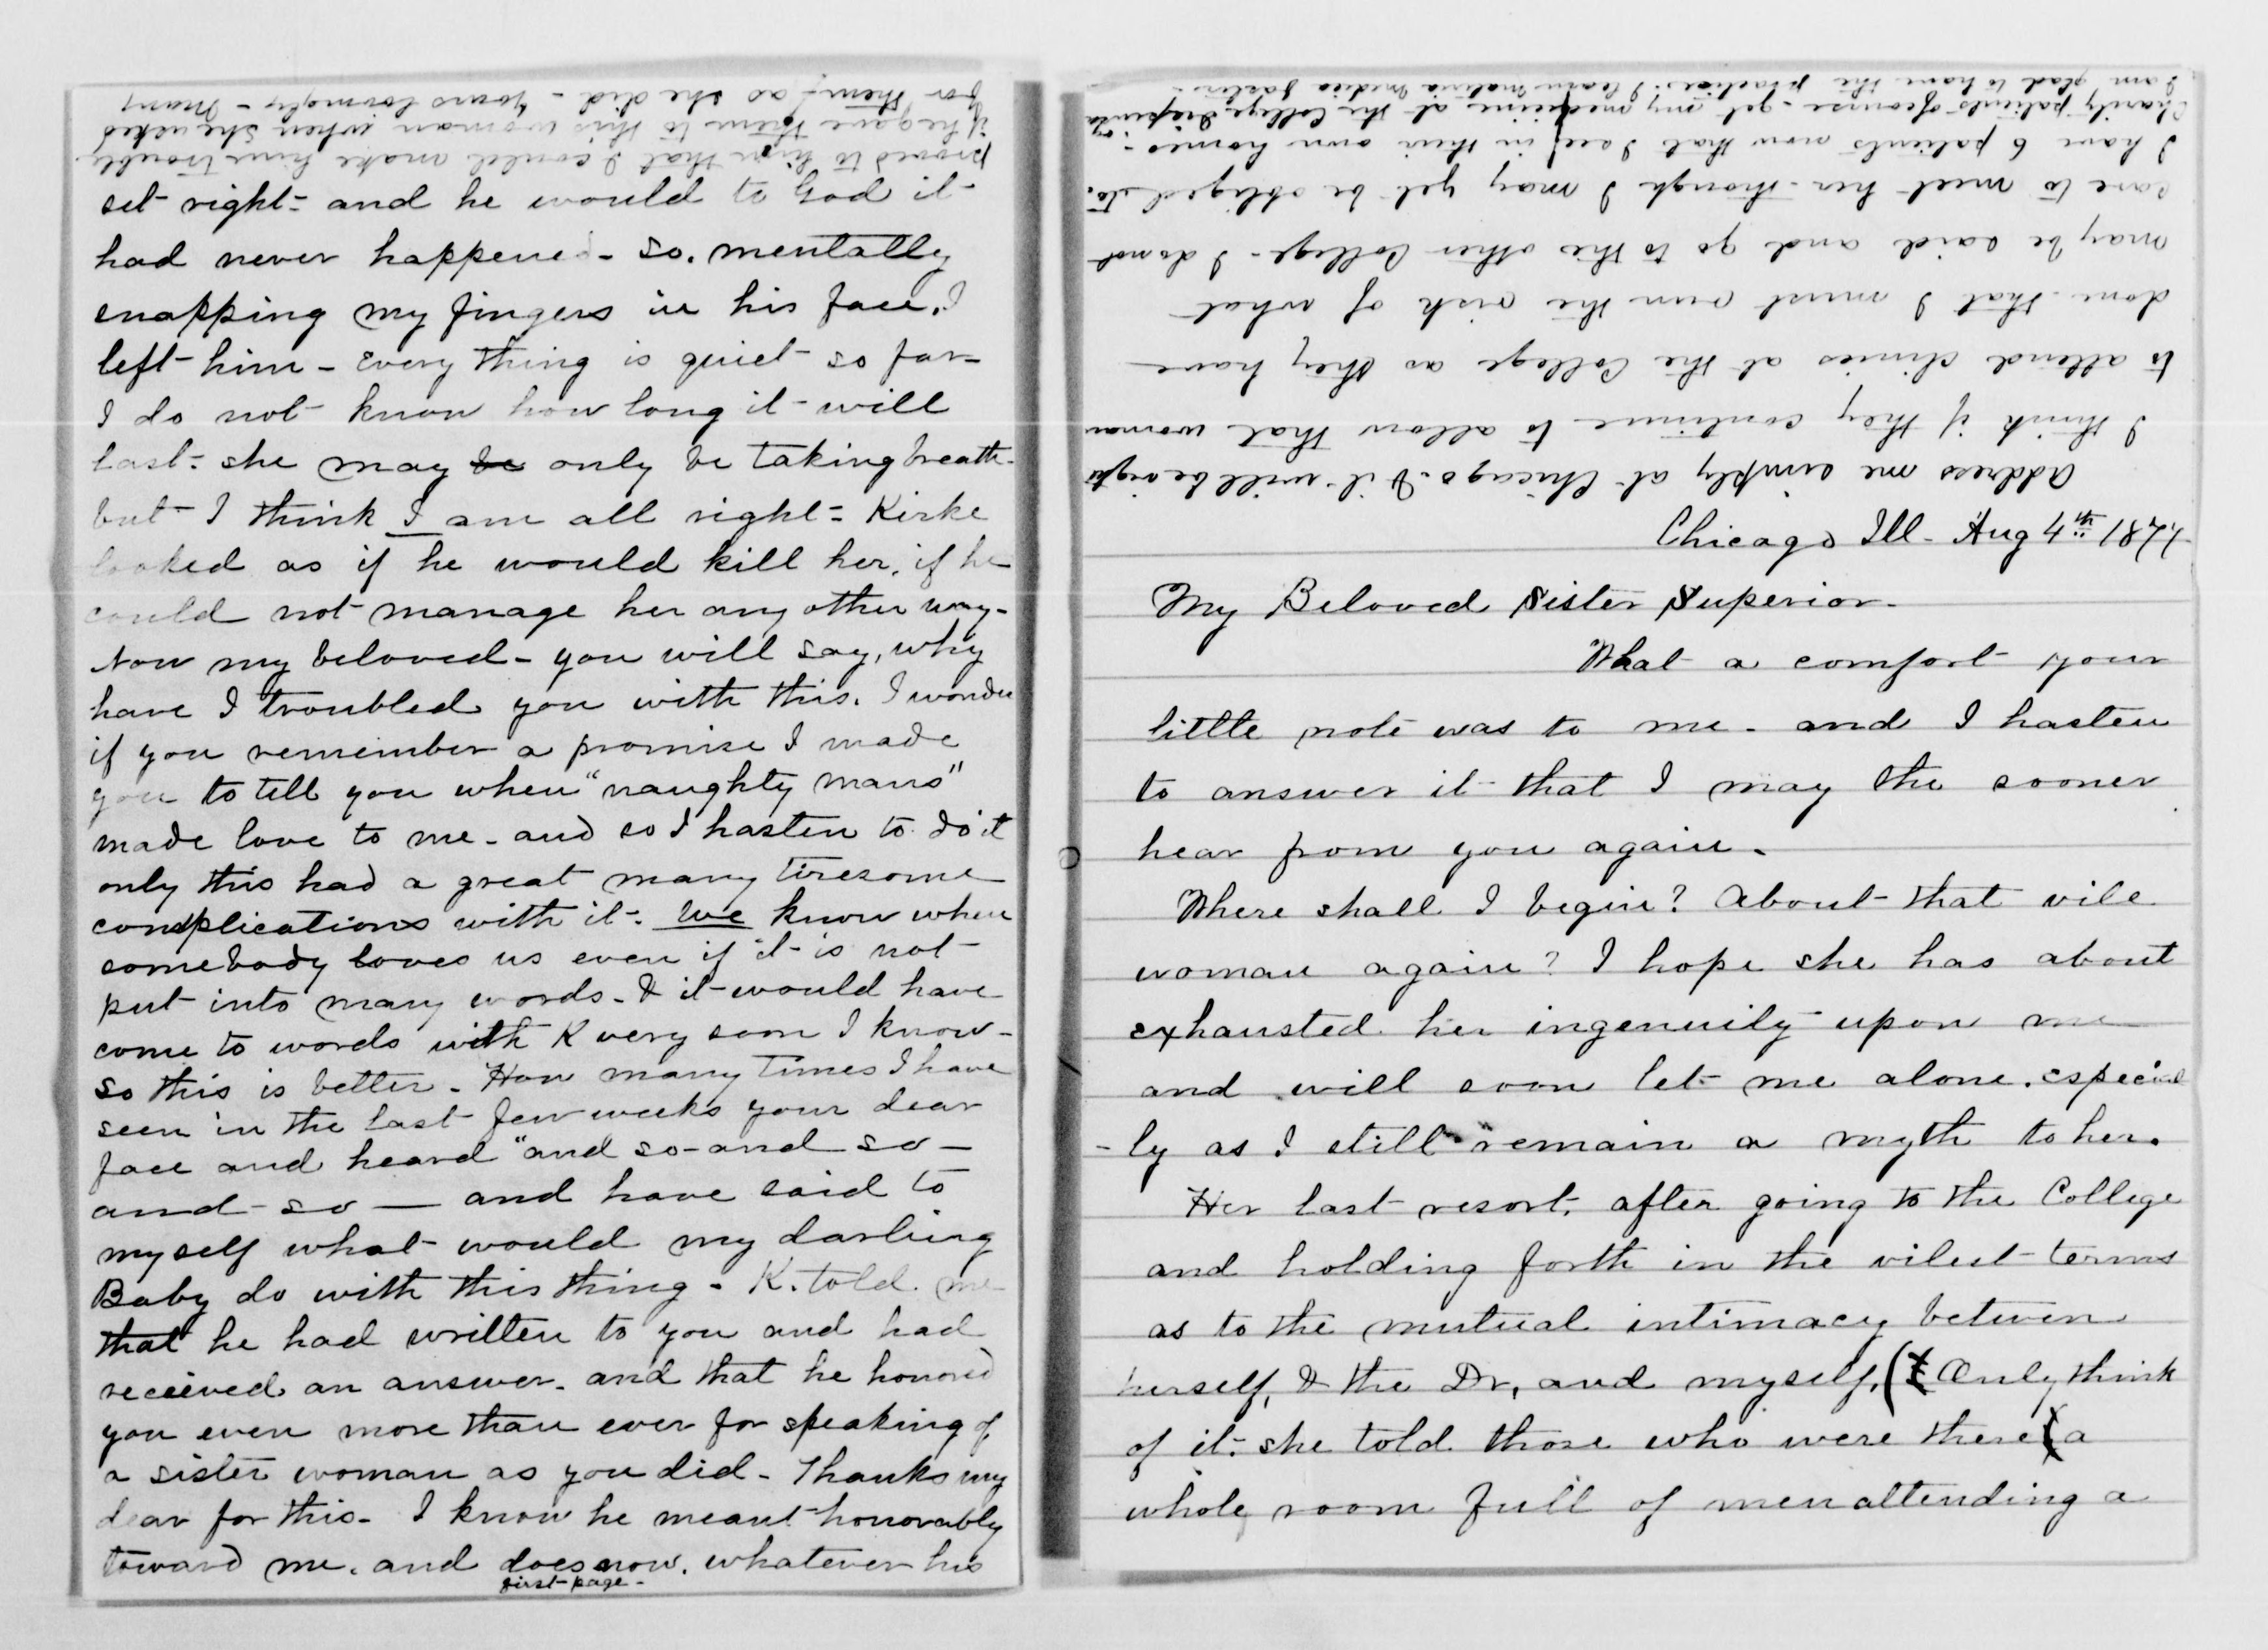 proved to him that I could make him trouble
if he gave them to this woman when she asked
for them, as she did - Yours lovingly - Mary
set right - and he would to God it
had never happened - so. mentally
snapping my fingers in his face, I
left him - Every thing is quiet so far -
I do not know how long it will
last - she may be only be taking breath -
but I think I am all right - Kirke
looked as if he would kill her, if he
could not manage her any other way -
Now my beloved - you will say, why
have I troubled you with this. I wonder
if you remember a promise I made
you to tell you when "naughty mans"
made love to me - and so I hasten to do it
only this had a great many tiresome
complications with it - We know when
somebody loves us even if it is not
put into many words - & it would have
come to words with K very soon I know -
so this is better - How many times I have
seen in the last few weeks your dear
face and heard "and so - and so -
and so — and have said to
myself what would my darling
Baby do with this thing - K. told me
that he had written to you and had
received an answer - and that he honored
you even more than ever for speaking of
a sister woman as you did - Thanks my
dear for this - I know he meant honorably
toward me. and does now. whatever his
first page -
Address me simply at Chicago. & it will be right
I think if they continue to allow that woman
to attend clinics at the College as they have
done that I must run the risk of what
may be said and go to the other College - I do not
care to meet her - though I may yet be obliged to.
I have 6 patients now that I see in their own homes -
Charity patients of course - get my medicine at the College
I am glad to have the practice. I learn materia medica faster -
Chicago Ill - Aug 4th
My Beloved Sister Superior -
What a comfort your
little note was to me - and I hasten
to answer it that I may the sooner
hear from you again -
Where shall I begin? About that vile
woman again? I hope she has about
exhausted her ingenuity upon me
and will soon let me alone. especial
-ly as I still remain a myth to her.
Her last resort, after going to the College
and holding forth in the vilest terms
as to the mutual intimacy between
herself, & the Dr, and myself, (Only think
of it - she told those who were there (a
whole room full of men attending a